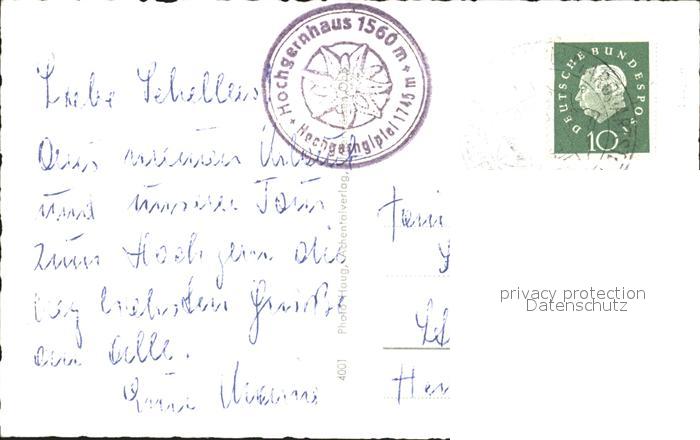 Hochgernhaus 1560 m + Hochgerngipfel 1745 m +
DEUTSCHE BUNDESPOST
10
Liebe Schellers
Aus meinem Urlaub
und unserer Tour
zum Hochgern die
herzlichsten Grüße
an alle.
Eure
Photo Haug, Achentalverlag,
4001
Fami
privacy protection
Datenschutz